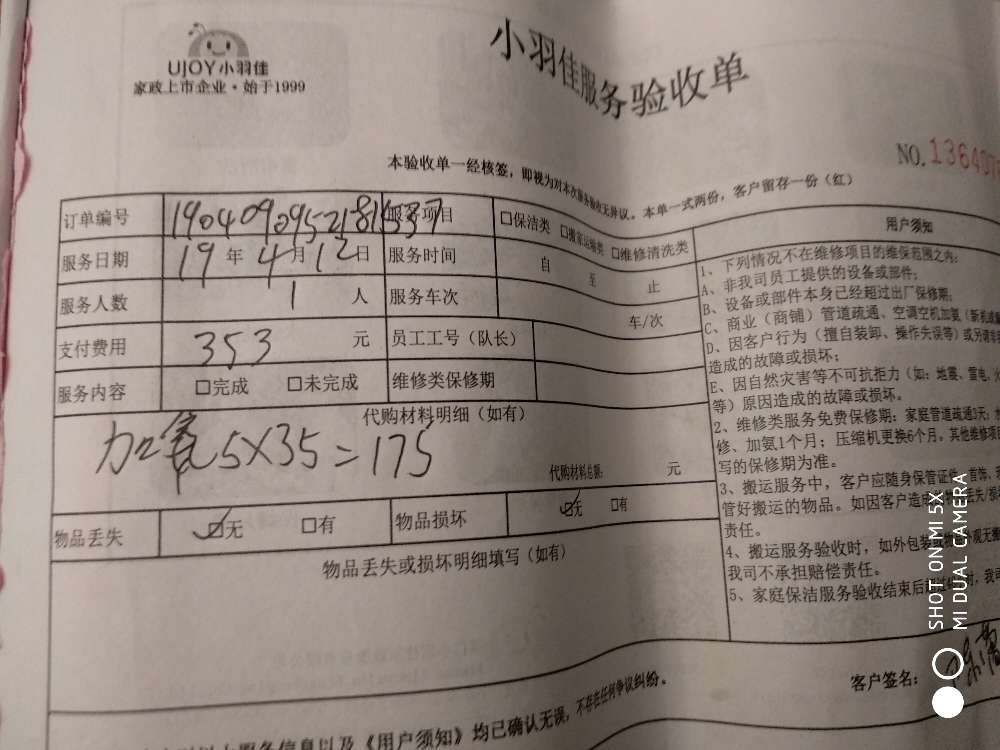 UJOY小羽佳
家政上市企业·始于1999
小羽佳服务验收单
NO.
本验收单一经核签，即视为对本次服务验收无异议。本单一式两份，客户留存一份（红）
订单编号
服务项目 □保洁类 □搬家运输类 □维修清洗类
服务日期 19年4月12日 服务时间 自 至 止
服务人数 1人 服务车次 车/次
支付费用 353元 员工工号（队长）
服务内容 □完成 □未完成 维修类保修期
代购材料明细（如有）
5×35=175
代购材料总额： 元
物品丢失 ☑无 □有 物品损坏 ☑无 □有
物品丢失或损坏明细填写（如有）
用户须知
1、下列情况不在维修项目的维保范围之内：
A、非我司员工提供的设备或部件；
B、设备或部件本身已经超过出厂保修期；
C、商业（商铺）管道疏通、空调空机加氨（新机或
D、因客户行为（擅自装卸、操作失误等）或另请
造成的故障或损坏；
E、因自然灾害等不可抗拒力（如：地震、雷电、
等）原因造成的故障或损坏。
2、维修类服务免费保修期：家庭管道疏通3天；
修、加氨1个月；压缩机更换6个月，其他维修项
写的保修期为准。
3、搬运服务中，客户应随身保管证件、首饰、
管好搬运的物品。如因客户造成
责任。
4、搬运服务验收时，如外包装或物
我司不承担赔偿责任。
5、家庭保洁服务验收结束后
客户签名：
服务信息以及《用户须知》均已确认无误，不存在任何争议纠纷。
SHOT ON MI 5X
MI DUAL CAMERA